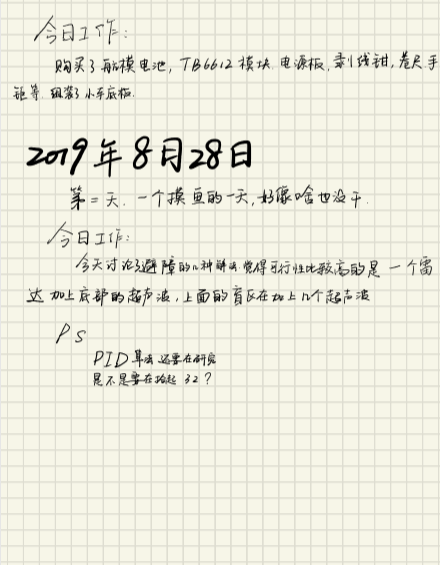 今日工作:
购买了航模电池, TB6612 模块. 电源板, 剥线钳, 卷尺, 手
钜等. 组装了小车底板.
2019年8月28日
第二天. 一个摸鱼的一天, 好像啥也没干.
今日工作:
今天讨论了避障的几种办法 觉得可行性比较高的是 一个雷
达 加上底部的超声波, 上面的盲区在加上几个超声波
PS
PID 算法 还要在研究
是不是要在拾起 32 ?